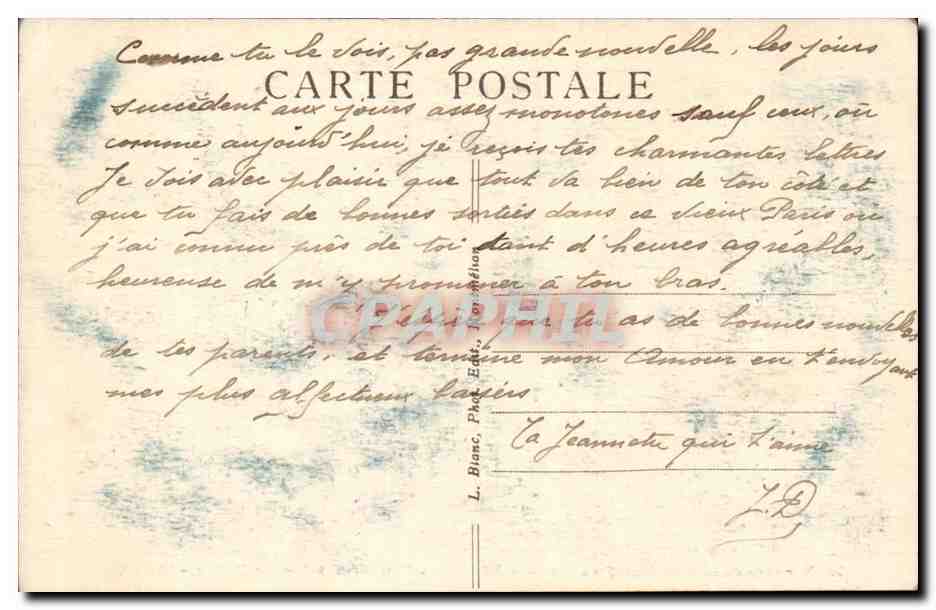 Comme tu le vois, pas grande nouvelle, les jours
CARTE POSTALE
succèdent aux jours assez monotones sauf ceux, où
comme aujourd'hui, je reçois tes charmantes lettres
Je vois avec plaisir que tout va bien de ton côté et
que tu fais de bonnes sorties dans ce vieux Paris où
j'ai connu près de toi tant d'heures agréables,
heureuse de m'y promener à ton bras.
que tu as de bonnes nouvelles
de tes parents, et termine mon Amour en t'envoyant
mes plus affectueux baisers
Ta Jeannette qui t'aime
J.D
L. Blanc, Phot. Edit.,
CPAPHIL